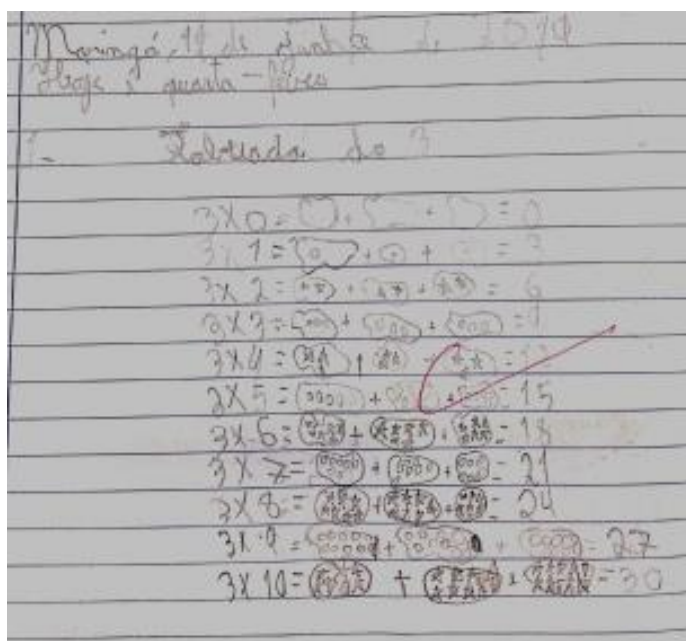 Maringá, 19 de de 2019
Hoje é quarta-feira
1- Tabuada do 3
3X0= + + =0
3x1= + + =3
3X2= + + =6
3X3= + + =9
3X4= + + =12
3X5= + + =15
3X6= + + =18
3X7= + + =21
3X8= + + =24
3X9= + + =27
3X10= + + =30